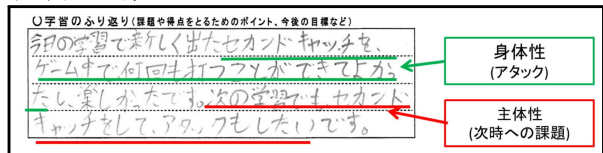 ○学習のふり返り(課題や得点をとるためのポイント、今後の目標など)
今日の学習で新しく出たセカンドキャッチを、
ゲーム中で何回も打つことができてよかっ
たし、楽しかったです。次の学習でもセカンド
キャッチをして、アタックもしたいです。
身体性
(アタック)
主体性
(次時への課題)